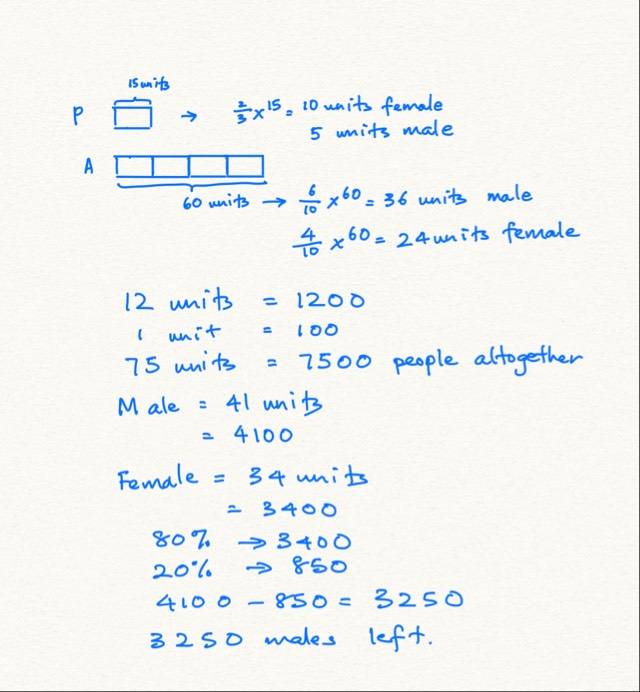 15 units
P → 2/3 x 15 = 10 units female
5 units male
A
60 units → 6/10 x 60 = 36 units male
4/10 x 60 = 24 units female
12 units = 1200
1 unit = 100
75 units = 7500 people altogether
Male = 41 units
= 4100
Female = 34 units
= 3400
80% → 3400
20% → 850
4100 - 850 = 3250
3250 males left.